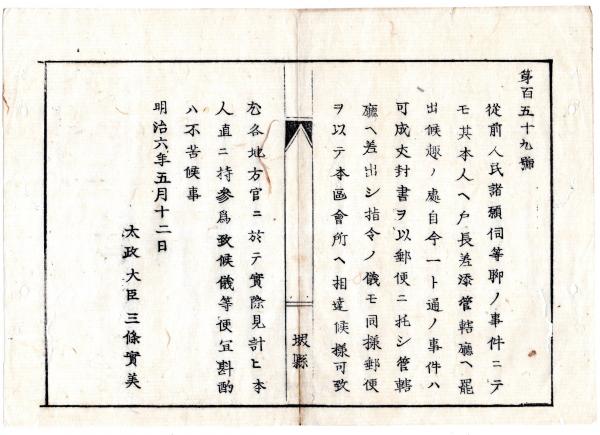 第百五十九號
從前人民諸願伺等聊ノ事件ニテ
モ其本人ヘ戸長差添管轄廳ヘ罷
出候趣ノ處自今一ト通ノ事件ハ
可成丈封書ヲ以郵便ニ托シ管轄
廳ヘ差出シ指令ノ儀モ同樣郵便
ヲ以テ本區會所ヘ相達候樣可致
坂縣
尤各地方官ニ於テ實際見計ヒ本
人直ニ持參爲致候儀等便宜斟酌
ハ不苦候事
明治六年五月十二日
太政大臣三條實美